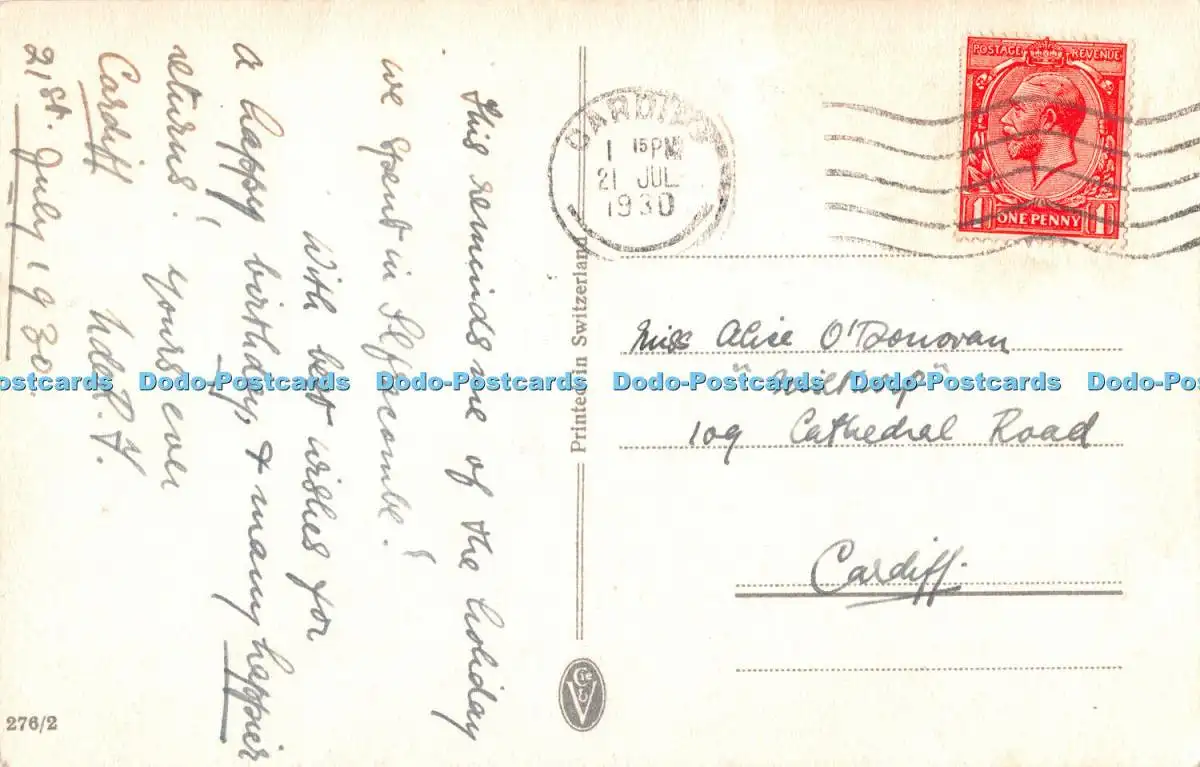 This reminds me of the holiday
we spent in Ilfracombe!
With best wishes for
a happy birthday, & many happier
returns! Yours ever
Cardiff
21st. July 1930.
CARDIFF
1 15PM
21 JUL
1930
POSTAGE REVENUE
1 ONE PENNY 1
Printed in Switzerland
Miss Alice O'Donovan
109 Cathedral Road
Cardiff.
276/2
Dodo-Postcards Dodo-Postcards Dodo-Postcards Dodo-Postcards Dodo-Postcards Dodo-Postcards